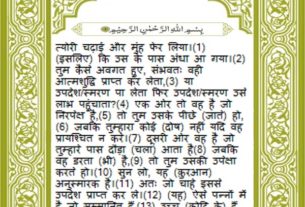 بِسْمِ اللهِ الرَّحْمٰنِ الرَّحِيْمِ
त्योरी चढ़ाई और मुंह फेर लिया।(1)
(इसलिए) कि उस के पास अंधा आ गया।(2)
तुम कैसे अवगत हुए, संभवतः वही
आत्मशुद्धि प्राप्त कर लेता,(3) या
उपदेश/स्मरण पा लेता फिर उपदेश/स्मरण उसे
लाभ पहुंचाता?(4) एक ओर तो वह है जो
निरपेक्ष है,(5) तो तुम उसके पीछे (जाते) हो,
(6) जबकि तुम्हारा कोई (दोष) नहीं यदि वह
प्रायश्चित न करे।(7) दूसरी ओर वह है जो
तुम्हारे पास दौड़ा (चला) आता है(8) जबकि
वह डरता (भी) है,(9) तो तुम उसकी उपेक्षा
करते हो।(10) सुन लो, यह (क़ुरआन)
अनुस्मारक है।(11) अतः जो चाहे इससे
उपदेश प्राप्त कर ले।(12) (यह) ऐसे पन्नों में